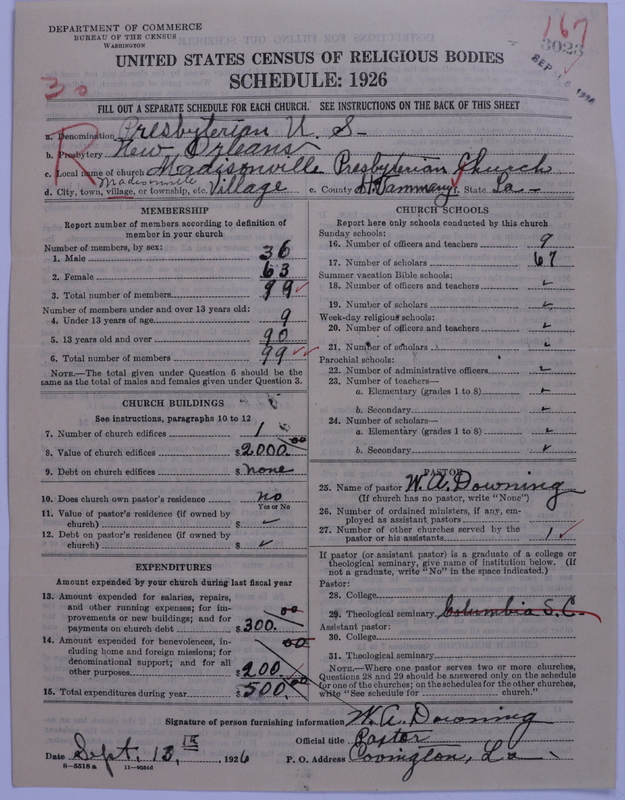 DEPARTMENT OF COMMERCE
BUREAU OF THE CENSUS
WASHINGTON
167
3023
SEP
UNITED STATES CENSUS OF RELIGIOUS BODIES
SCHEDULE: 1926
30
R
FILL OUT A SEPARATE SCHEDULE FOR EACH CHURCH. SEE INSTRUCTIONS ON THE BACK OF THIS SHEET
a. Denomination Presbyterian U. S-
b. Presbytery New Orleans
c. Local name of church Madisonville Presbyterian Church
Madisonville
d. City, town, village, or township, etc. Village e. County St Tammany f. State La -
MEMBERSHIP
Report number of members according to definition of
member in your church
Number of members, by sex:
1. Male 36
2. Female 63
3. Total number of members 99 ✓
Number of members under and over 13 years old:
4. Under 13 years of age 9
5. 13 years old and over 90
6. Total number of members 99 ✓✓
NOTE.—The total given under Question 6 should be
same as the total of males and females given under Question 3.
CHURCH BUILDINGS
See instructions, paragraphs 10 to 12
7. Number of church edifices 1
8. Value of church edifices $2000.00
9. Debt on church edifices $none
10. Does church own pastor's residence no
Yes or No
11. Value of pastor's residence (if owned by
church) $ ✓
12. Debt on pastor's residence (if owned by
church) $ ✓
EXPENDITURES
Amount expended by your church during last fiscal year
13. Amount expended for salaries, repairs,
and other running expenses; for im-
provements or new buildings; and for
payments on church debt $300.00
14. Amount expended for benevolences, in-
cluding home and foreign missions; for
denominational support; and for all
other purposes $200.00
15. Total expenditures during year $500.00
CHURCH SCHOOLS
Report here only schools conducted by this church
Sunday schools:
16. Number of officers and teachers 9
17. Number of scholars 67
Summer vacation Bible schools:
18. Number of officers and teachers ✓
19. Number of scholars ✓
Week-day religious schools:
20. Number of officers and teachers ✓
21. Number of scholars ✓
Parochial schools:
22. Number of administrative officers ✓
23. Number of teachers—
a. Elementary (grades 1 to 8) ✓
b. Secondary ✓
24. Number of scholars—
a. Elementary (grades 1 to 8) ✓
b. Secondary ✓
PASTOR
25. Name of pastor W. A. Downing
(If church has no pastor, write "None")
26. Number of ordained ministers, if any, em-
ployed as assistant pastors
27. Number of other churches served by the
pastor or his assistants 1 ✓
If pastor (or assistant pastor) is a graduate of a college or
theological seminary, give name of institution below. (If
not a graduate, write "No" in the space indicated.)
Pastor:
28. College
29. Theological seminary Columbia S. C.
Assistant pastor:
30. College
31. Theological seminary
NOTE.—Where one pastor serves two or more churches,
Questions 28 and 29 should be answered only on the schedule
for one of the churches; on the schedules for the other churches,
write "See schedule for church."
Signature of person furnishing information W. A. Downing
Official title Pastor
Date Sept. 13th, 1926 P. O. Address Covington, La
8—5518 a